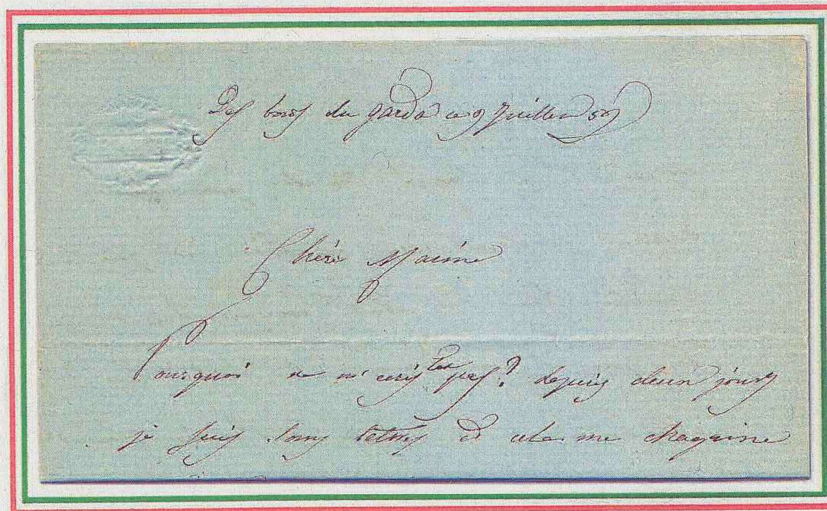 Des bords du garda ce 9 Juillet 59
Chère Marine
Pourquoi ne m'écris tu pas? depuis deux jours
je suis sans lettres et cela me chagrine